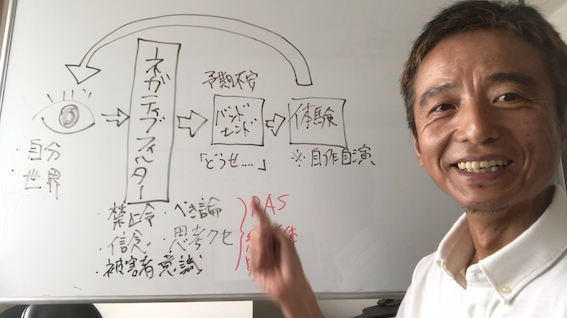 ネガティブフィルター
予期不安
バンド
エンド
体験
「どうせ.....」
※自作自演
・自分
・世界
・禁止令 ・べき論
・信念 ・思考クセ
・被害者意識
RAS